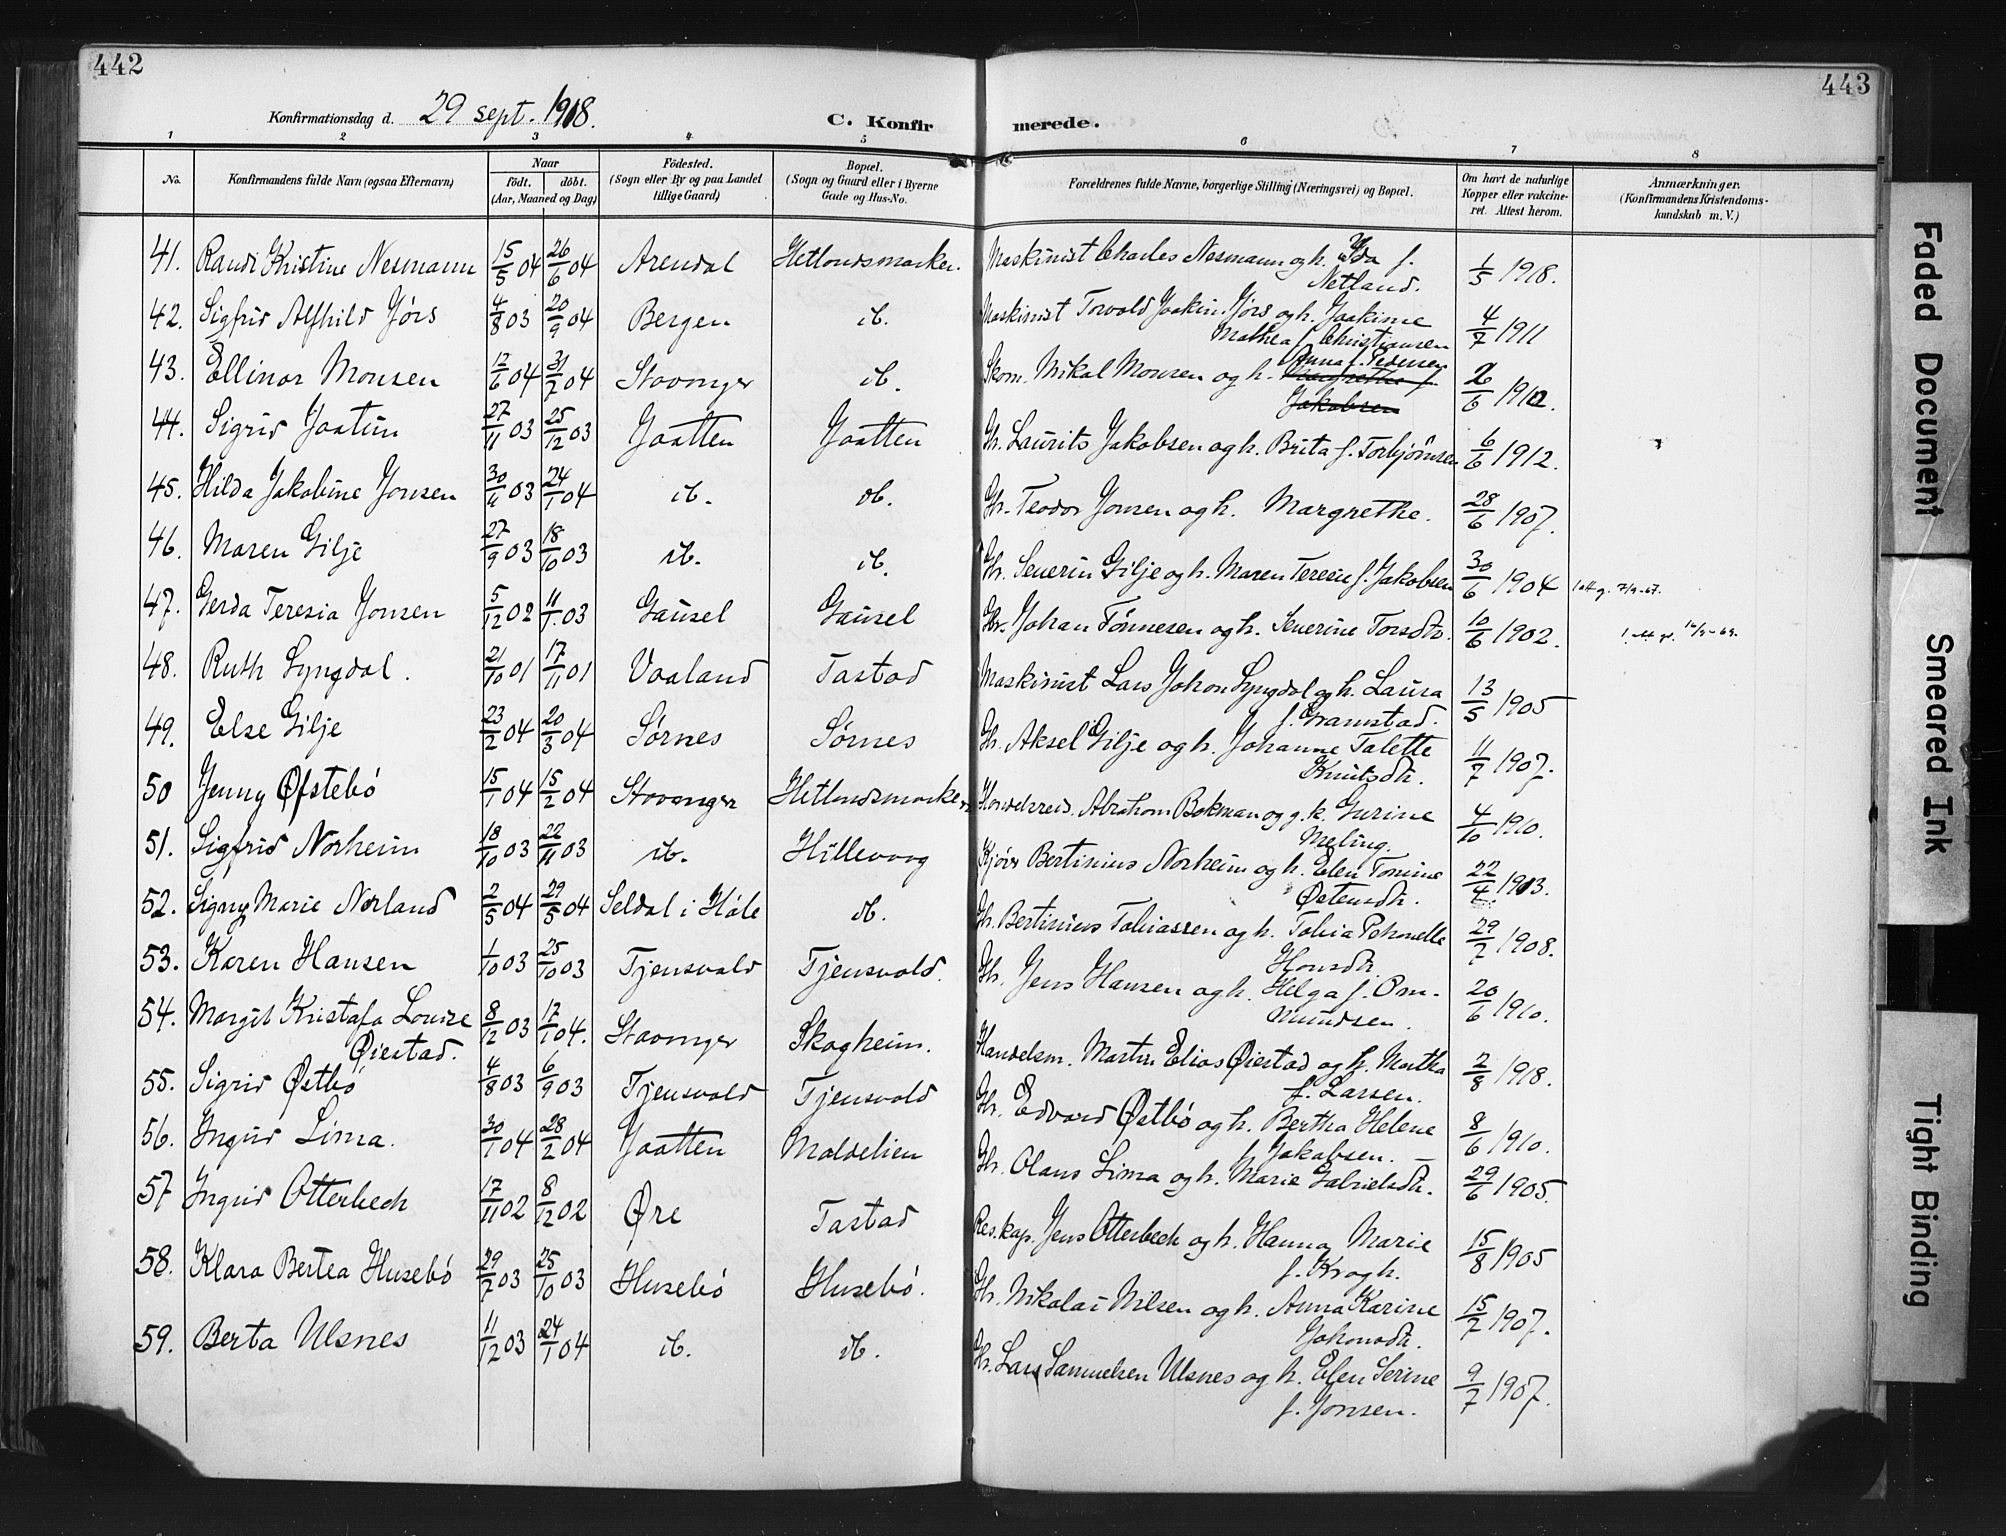 442
443
Konfirmationsdag d. 29 sept. 1918.
C. Konfirmerede.
1 2 3 4 5 6 7 8
No.
Konfirmandens fulde Navn (ogsaa Efternavn)
Naar
födt. döbt.
(Aar, Maaned og Dag)
Födested.
(Sogn eller By og paa Landet
tillige Gaard)
Bopæl.
(Sogn og Gaard eller i Byerne
Gade og Hus-No.
Forældrenes fulde Navne, borgerlige Stilling (Næringsvei) og Bopæl.
Om havt de naturlige
Kopper eller vakcine-
ret. Attest herom.
Anmærkninger.
(Konfirmandens Kristendoms-
kundskab m. V.)
41. Randi Kristine Nesmann 15/5 04 26/6 04 Arendal Hetlandsmarken. Maskinist Charles Nesmann og h. Ida f.
Netland. 1/5 1918.
42. Sigfrid Alfhild Jørs 4/8 03 20/9 04 Bergen ib. Maskinist Torvald Joakim Jørs og h. Joakime
Mathea f. Christiansen 4/7 1911
43. Ellinor Monsen 12/6 04 31/7 04 Stavanger ib. Skom. Mikal Monsen og h. Anna f. Pedersen
Margrethe f.
Jakobsen 2/6 1912.
44. Sigrid Jaatun 27/11 03 25/12 03 Jaatten Jaatten Gbr. Laurits Jakobsen og h. Brita f. Torbjörnsen 6/6 1912.
45. Hilda Jakobine Jonsen 30/11 03 24/1 04 ib. ib. Gbr. Teodor Jonsen og h. Margrethe. 28/6 1907.
46. Maren Gilje 27/9 03 18/10 03 ib. ib. Gbr. Severin Gilje og h. Maren Teresie f. Jakobsen 30/6 1904
47. Gerda Teresia Jonsen 5/12 02 11/1 03 Gausel Gausel Gbr. Johan Tönnesen og h. Severine Torsdtr. 10/6 1902.
48. Ruth Lyngdal. 21/10 01 17/11 01 Vaaland Tastad Maskinist Lars Johan Lyngdal og h. Laura
f. Gramstad. 13/5 1905
49. Else Gilje 23/2 04 20/3 04 Sørnes Sørnes Gbr. Aksel Gilje og h. Johanne Talette
Knutsdtr. 11/7 1907.
50 Jenny Øfstebö 15/1 04 15/2 04 Stavanger Hetlandsmarken Handelsreis. Abraham Bokman og g. k. Gurine
Meling. 4/10 1910.
51. Sigfrid Norheim 18/10 03 22/11 03 ib. Hillevaag Kjører Bertinius Norheim og h. Elen Tomine
Østensdtr. 22/4 1913.
52. Signy Marie Norland 2/5 04 29/5 04 Seldal i Höle ib. Gbr. Bertinius Tobiassen og h. Tobia Petronelle
Hansdtr. 29/7 1908.
53. Karen Hansen 1/10 03 25/10 03 Tjensvold Tjensvold. Gbr. Jens Hansen og h. Helga f. Om-
mundsen. 20/6 1910.
54. Margit Kristafa Lovise
Øiestad. 8/12 03 17/1 04. Stavanger Skogheim. Handelsm. Martin Elias Øiestad og h. Martha
f. Larsen. 2/8 1918.
55. Sigrid Østbö 4/8 03 6/9 03 Tjensvold Tjensvold Gbr. Edvard Østbö og h. Bertha Helene
f. Jakobsen. 8/6 1910.
56. Ingrid Lima. 30/1 04 28/2 04 Jaatten Maldelien Gbr. Olaus Lima og h. Marie Gabrielsdtr. 29/6 1905.
57 Ingrid Otterbech 17/11 02 8/12 02 Øre Tastad Res.kap. Jens Otterbech og h. Hanna Marie
f. Krogh. 15/8 1905
58. Klara Bertea Husebö 29/7 03 25/10 03 Husebö Husebö. Gbr. Nikolai Nilsen og h. Anna Karine
Johansdtr. 15/7 1907.
59. Berta Ulsnes 11/12 03 24/1 04 ib. ib. Gbr. Lars Samuelsen Ulsnes og h. Elen Serine
f. Jonsen. 9/7 1907.
Faded Document
Smeared Ink
Tight Binding